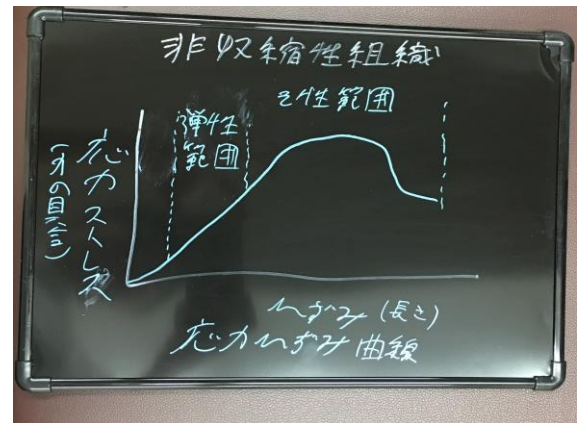 非収縮性組織
そ性範囲
弾性
範囲
応力ストレス
(力の具合)
ひずみ (長さ)
応力ひずみ曲線